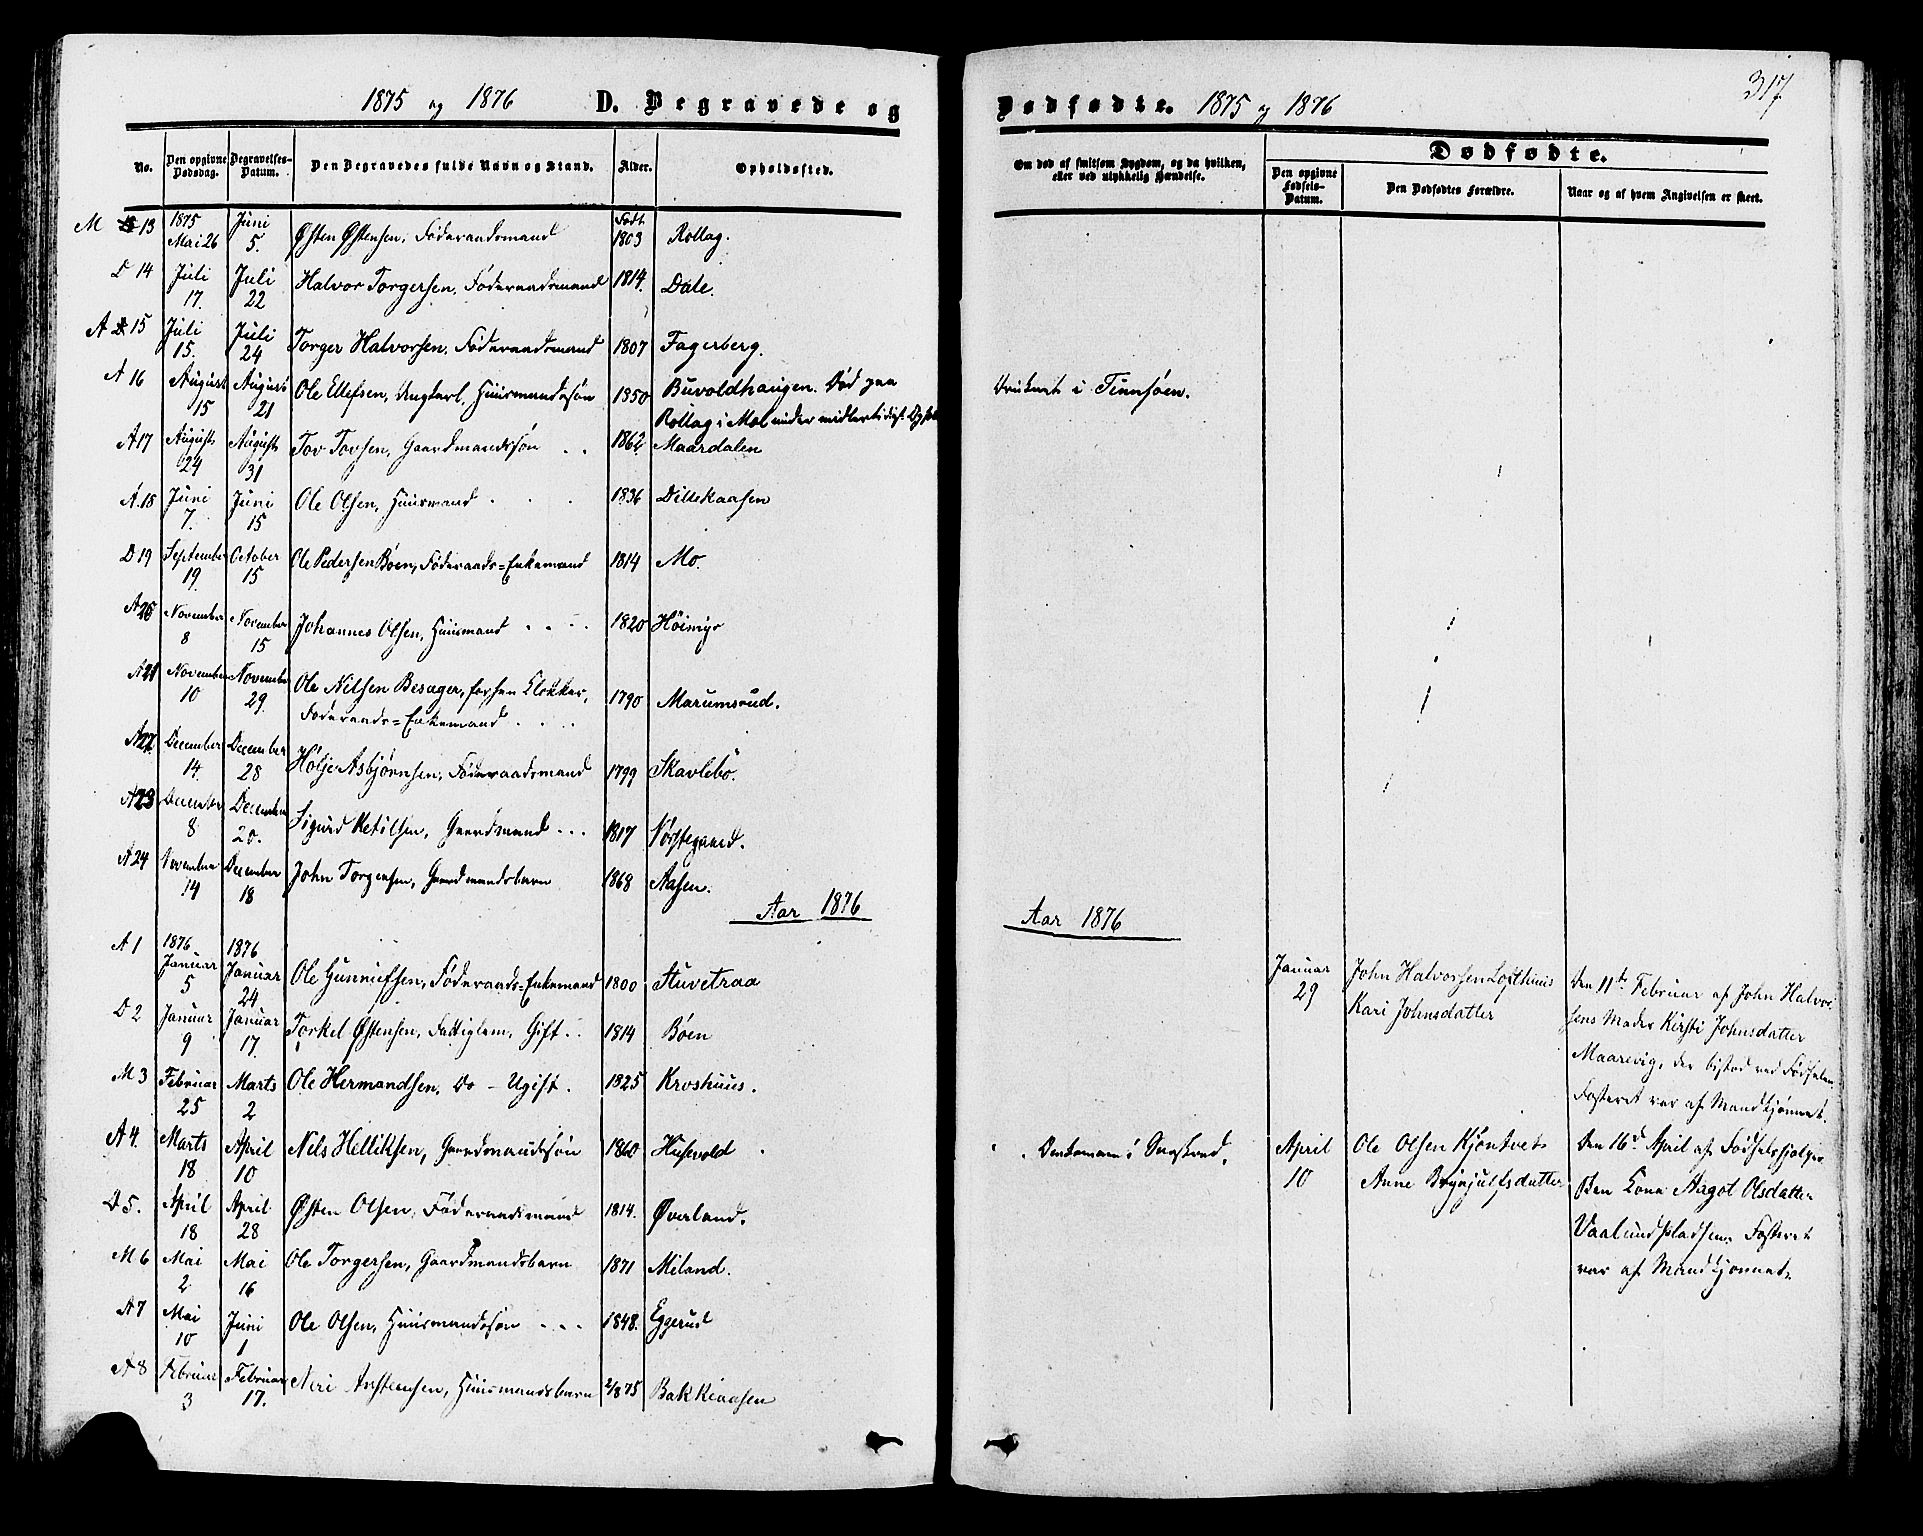 1875 og 1876 D. Begravede og
No. Den opgivne Dødsdag. Begravelses-Datum. Den Begravedes fulde Navn og Stand. Alder. Opholdssted.
M 13 1875 Mai 26 Juni 5. Østen Østensen, Føderaadsmand Født 1803 Rollag.
D 14 Juli 17. Juli 22 Halvor Torgersen, Føderaadsmand 1814. Dale.
A 15 Juli 15. Juli 24 Torger Halvorsen, Føderaadsmand 1807 Fagerberg.
A 16 August 15 August 21 Ole Ellefsen, Ungkarl, Huusmandssøn 1850 Buvoldhaugen. Død paa
Rollag i Mæl under midlertidigt
A 17 August 24 August 31 Tov Tovsen, Gaardmandssøn 1862 Maardalen
A. 18 Juni 7. Juni 15 Ole Olsen, Huusmand 1836 Dillekaasen
D 19 September 19. October 15 Ole Pedersen Bøen, Føderaads=Enkemand 1814 Mo.
A 20 November 8 November 15 Johannes Olsen, Huusmand 1820 Höimyr
A 21 November 10 November 29. Ole Nilsen Besager, forhen Klokker,
Føderaads=Enkemand 1790 Marumsrud.
A 22. December 14. December 28 Hølje Asbjørnsen, Føderaadsmand 1799 Skavlebö.
A 23 December 8 December 20. Sigurd Ketilsen, Gaardmand 1817 Nørstegaard.
A 24 November 14 December 18 John Torgersen, Gaardmandsbarn 1868 Aasen.
Aar 1876
A 1 1876 Januar 5 1876 Januar 24. Ole Gunnufsen, Føderaads=Enkemand 1800 Stuvetraa
D 2 Januar 9 Januar 17. Torkel Østensen, Fattiglem, Gift 1814 Bøen
M 3 Februar 25 Marts 2 Ole Hermandsen, Do - Ugift. 1825 Kroshuus.
A 4. Marts 18 April 10 Nils Helliksen, Gaardmandssøn 1860 Husevold
D 5. April 18 April 28 Østen Olsen, Føderaadsmand 1814. Øverland.
M 6 Mai 2 Mai 16 Ole Torgersen, Gaardmandsbarn 1871 Miland.
A 7 Mai 10 Juni 1 Ole Olsen, Huusmandssøn 1848. Eggerud
A 8 Februar 3 Februar 17. Neri Anstensen, Huusmandsbarn 2/875 Bakkekaasen
317
Dødfødte. 1875 og 1876
Om død af smitsom Sygdom, og da hvilken, eller ved ulykkelig Hændelse.
Dødfødte.
Den opgivne Fødsels-Datum. Den Dødfødtes Forældre. Naar og af hvem Angivelsen er skeet.
Druknet i Tinnsøen.
Aar 1876
Januar 29 John Halvorsen Lofthuus
Kari Johnsdatter
Den 11te Februar af John Halvor-
sens Moder Kirsti Johnsdatter
Maarevig, der bistod ved Fødselen.
Fosteret var af Mandkjønnet.
April 10 Ole Olsen Kjøntvet
Anne Brynjulfsdatter
Den 16de April af Fødselshjælper-
Kone Aagot Olsdatter
Vaalundpladsen. Fosteret
var af Mandkjønnet.